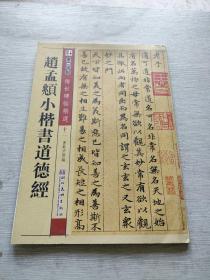 趙孟頫小楷書道德經
傳世碑帖精選
老子
道可道非常道名可名非常名無名天地之始
有名萬物之母常無欲以觀其妙常有欲以觀
其徼此兩者同出而異名同謂之玄玄之又玄衆
妙之門
天下皆知美之為美斯惡已皆知善之為善斯不
善已故有無之相生難易之相成長短之相形